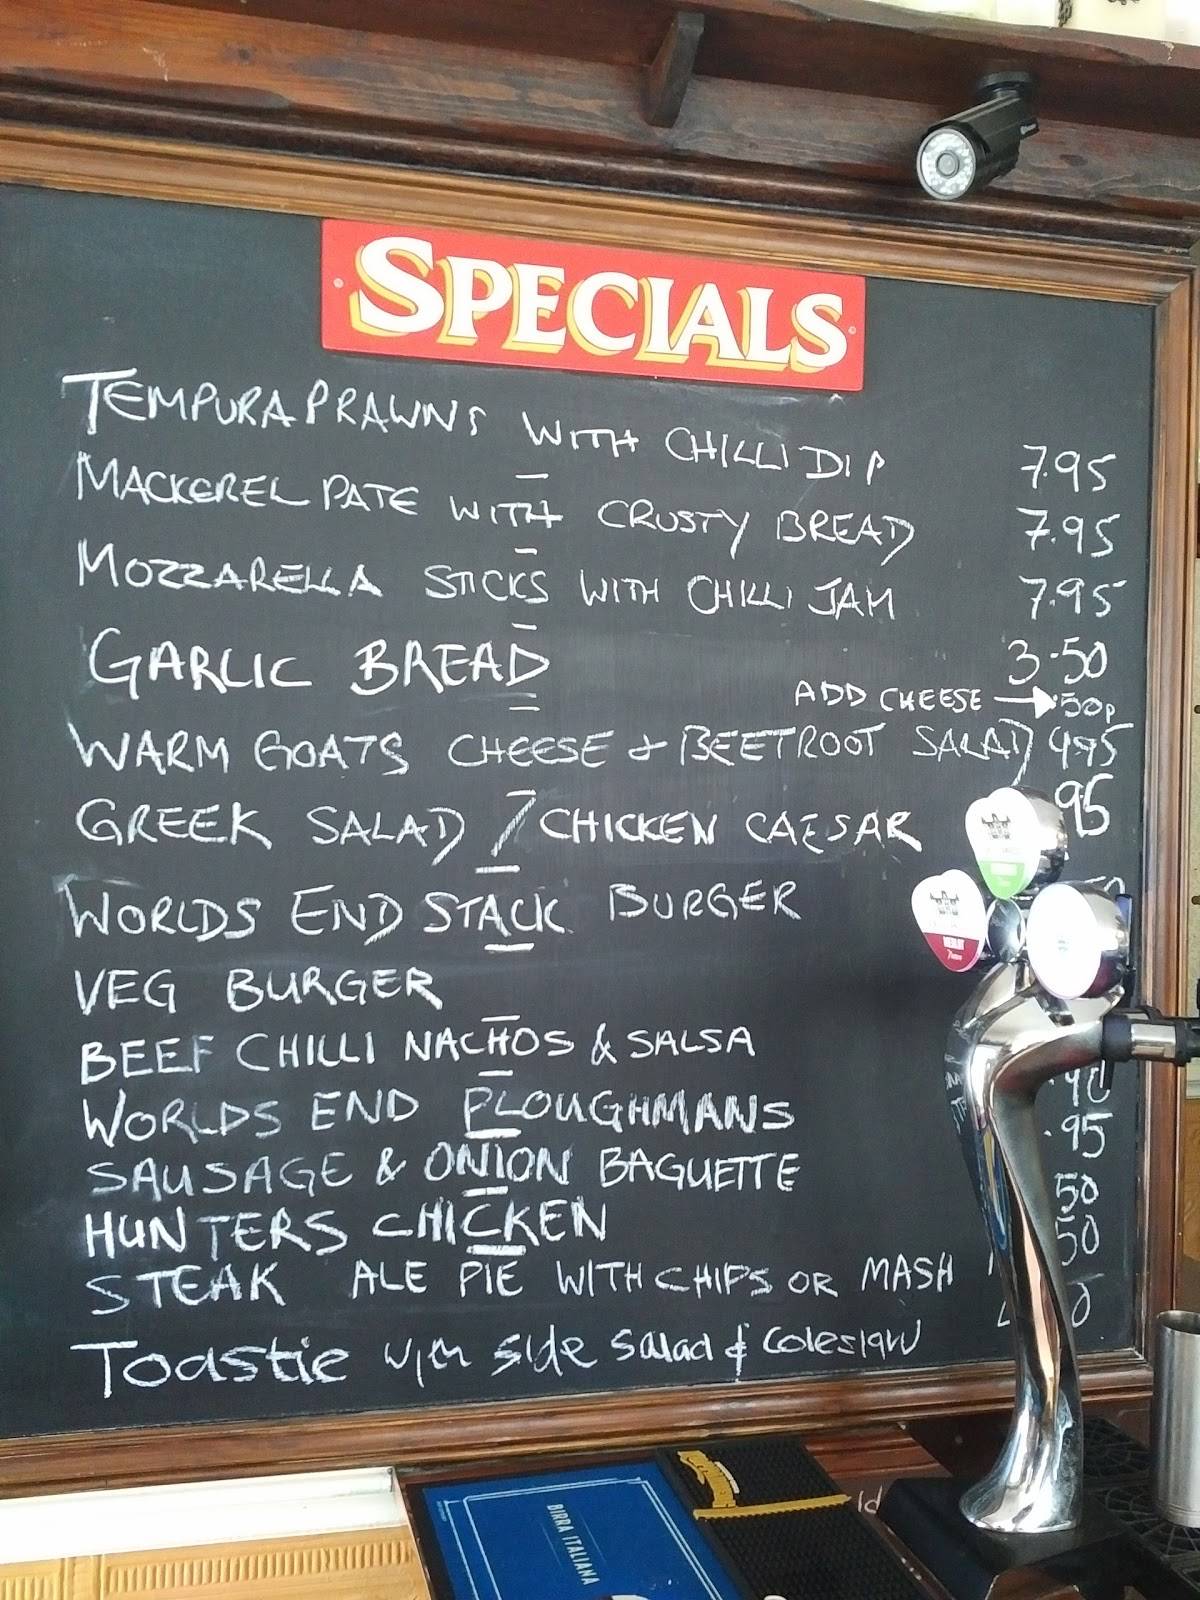 SPECIALS
TEMPURA PRAWNS WITH CHILLI DIP 7.95
MACKEREL PATE WITH CRUSTY BREAD 7.95
MOZZARELLA STICKS WITH CHILLI JAM 7.95
GARLIC BREAD 3.50
ADD CHEESE → .50p
WARM GOATS CHEESE & BEETROOT SALAD
GREEK SALAD / CHICKEN CAESAR 95
WORLDS END STACK BURGER
VEG BURGER
BEEF CHILLI NACHOS & SALSA
WORLDS END PLOUGHMANS .95
SAUSAGE & ONION BAGUETTE 50
HUNTERS CHICKEN 50
STEAK ALE PIE WITH CHIPS OR MASH
Toastie with side salad & coleslaw
BIRRA ITALIANA